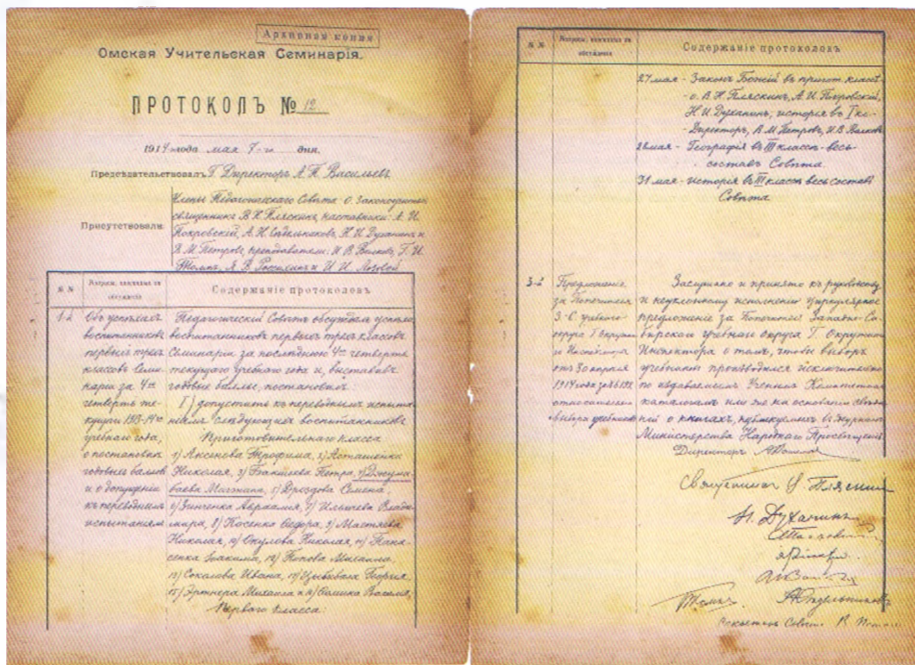 Архивная копія
Омская Учительская Семинарія.
ПРОТОКОЛЪ № 12
1914 года мая 7-го дня.
Председательствовалъ Г. Директоръ А. П. Васильевъ
Присутствовали:
Члены Педагогическаго Совѣта: О. Законоучитель
священникъ В. Н. Пляскинъ, наставники: А. И.
Покровскій, А. Н. Седельниковъ, Н. И. Духанинъ и
В. М. Петровъ, преподаватели: И. В. Волковъ, Г. И.
Томъ, Я. В. и И. И. Логовой
№ №
Вопросы,
обсужденіе
Содержаніе протоколовъ
1-й
Объ успѣхахъ
воспитанниковъ
первыхъ трехъ
классовъ Семи-
наріи за 4-ю
четверть те-
кущаго 1913-14
учебнаго года,
о постановкѣ
годовыхъ балловъ
и о допущеніи
къ переводнымъ
испытаніямъ
Педагогическій Совѣтъ обсуждалъ успѣхи
воспитанниковъ первыхъ трехъ классовъ
Семинаріи за послѣднюю 4-ю четверть
текущаго учебнаго года и, выставивъ
годовые баллы, постановилъ:
I) допустить къ переводнымъ испыта-
ніямъ слѣдующихъ воспитанниковъ:
Приготовительнаго класса
1) Аксенова Трофима, 2) Асташенко
Николая, 3) Петра, 4) Джума-
баева Магжана, 5) Дроздова Семена,
6) Зинченко Авраамія, 7) Ильичева Влади-
мира, 8) Косенко 9) Мастяева
Николая, 10) Окулова Николая, 11) Пана-
сенка Іоакима, 12) Попова Михаила
13) Соколова Ивана, 14) Цыбикова Георгія,
15) Эртнера Михаила и 16) Василія,
Перваго класса
№ №
Вопросы,
обсужденіе
Содержаніе протоколовъ
27 мая - Законъ Божій въ пригот. классѣ
- о. В. Н. Пляскинъ, А. И. Покровскій,
Н. И. Духанинъ; исторія въ I кл. -
Директоръ, В. М. Петровъ, И. В. Волковъ
28 мая - Географія въ III классѣ - весь
составъ Совѣта
31 мая - исторія въ III классѣ весь составъ
Совѣта
3-й
Предложеніе
за Попечителя
З-С. учебнаго
округа Г. Окружного
Инспектора
отъ 30 апрѣля
1914 года за №
относительно
выбора учебниковъ
Заслушано и принято къ руководству
и неуклонному исполненію циркулярное
предложеніе за Попечителя Западно-Си-
бирскаго учебнаго округа Г. Окружного
Инспектора о томъ, чтобы выборъ
учебниковъ производился исключительно
по издаваемымъ Ученымъ Комитетомъ
каталогамъ или же на основаніи свѣдѣ-
ній о книгахъ, публикуемыхъ въ журналѣ
Министерства Народнаго Просвѣщенія
Директоръ
Священникъ В. Пляскинъ
Н. Духанинъ
Томъ
А. Седельниковъ
Секретарь Совѣта В. Петровъ